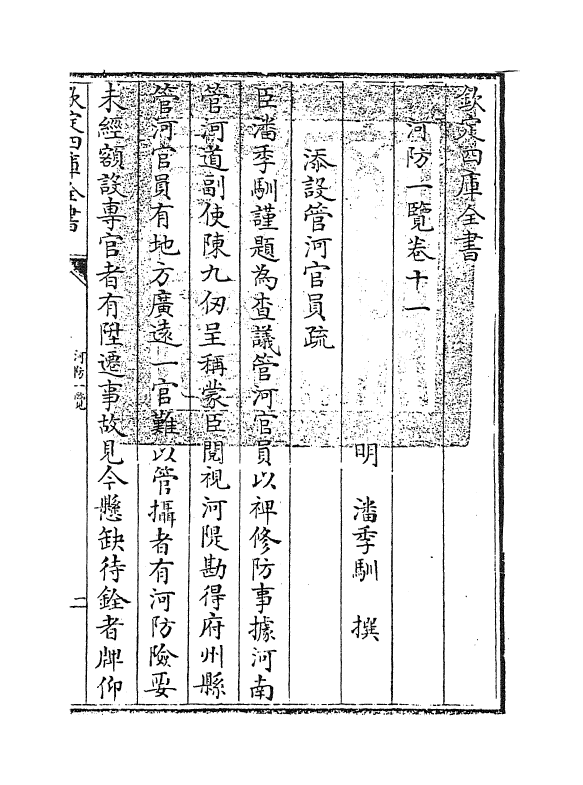 欽定四庫全書
河防一覽卷十一
明 潘季馴 撰
添設管河官員疏
臣潘季馴謹題為查議管河官員以裨修防事據河南
管河道副使陳九仞呈稱蒙臣閱視河隄勘得府州縣
管河官員有地方廣遠一官難以管攝者有河防險要
未經額設專官者有陞遷事故見今懸缺待銓者牌仰
欽定四庫全書
河防一覽
二